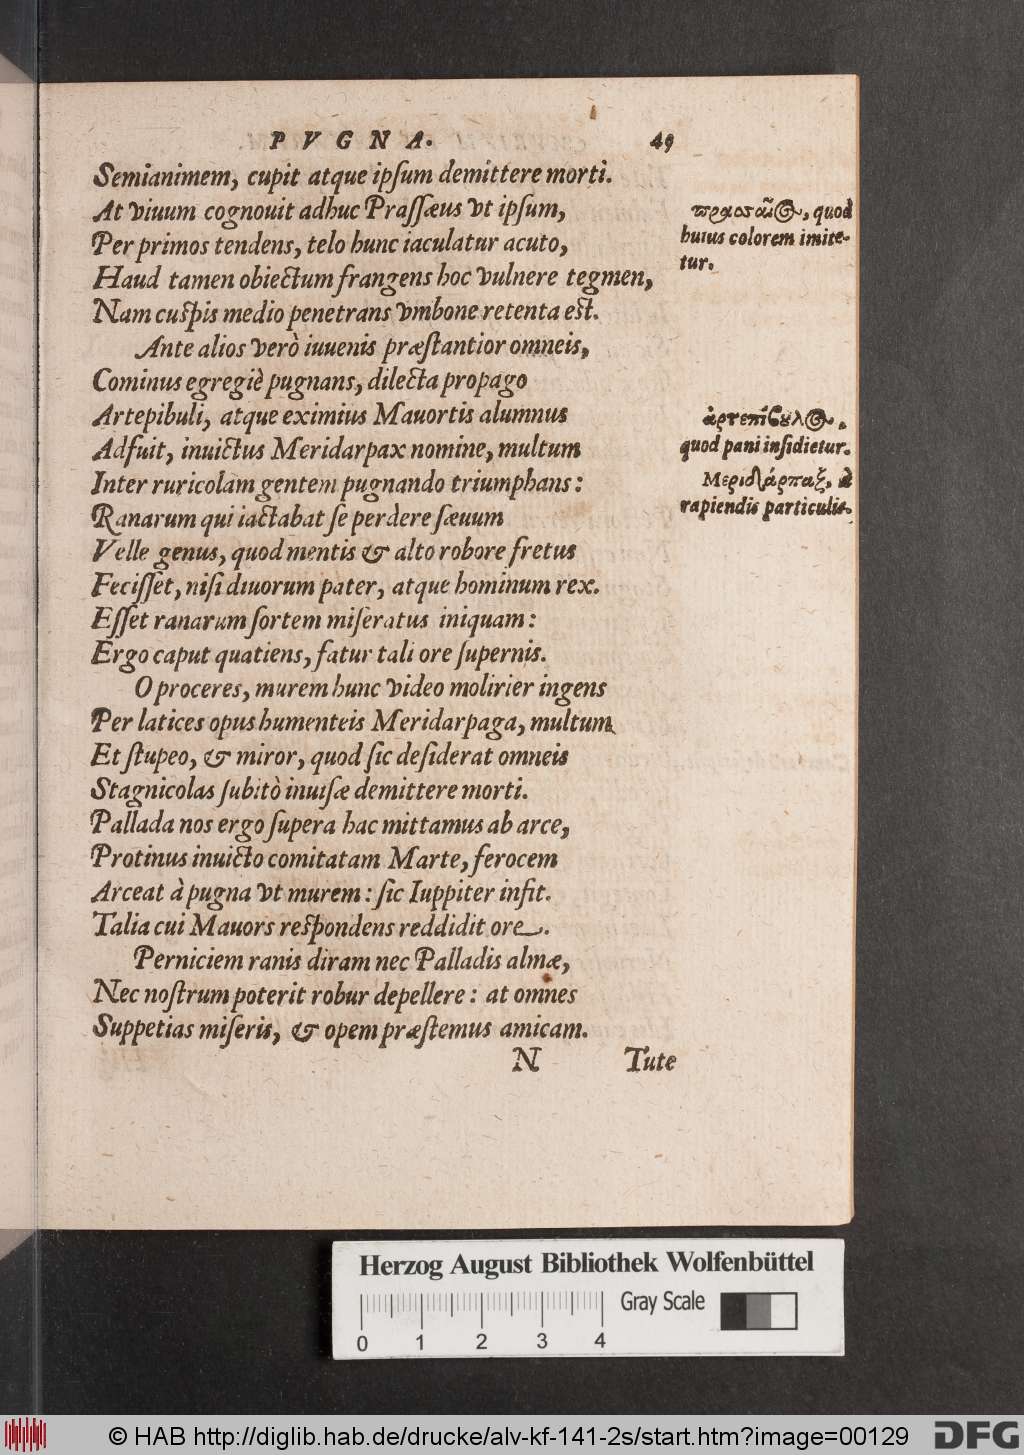 PVGNA. 49
Semianimem, cupit atque ipsum demittere morti.
At viuum cognouit adhuc Prassæus vt ipsum,
Per primos tendens, telo hunc iaculatur acuto,
Haud tamen obiectum frangens hoc vulnere tegmen,
Nam cuspis medio penetrans vmbone retenta est.
Ante alios verò iuuenis præstantior omneis,
Cominus egregiè pugnans, dilecta propago
Artepibuli, atque eximius Mauortis alumnus
Adfuit, inuictus Meridarpax nomine, multum
Inter ruricolam gentem pugnando triumphans:
Ranarum qui iactabat se perdere sæuum
Velle genus, quod mentis & alto robore fretus
Fecisset, nisi diuorum pater, atque hominum rex.
Esset ranarum sortem miseratus iniquam:
Ergo caput quatiens, fatur tali ore supernis.
O proceres, murem hunc video molirier ingens
Per latices opus humenteis Meridarpaga, multum
Et stupeo, & miror, quod sic desiderat omneis
Stagnicolas subitò inuisæ demittere morti.
Pallada nos ergo supera hac mittamus ab arce,
Protinus inuicto comitatam Marte, ferocem
Arceat à pugna vt murem: sic Iuppiter infit.
Talia cui Mauors respondens reddidit ore.
Perniciem ranis diram nec Palladis almæ,
Nec nostrum poterit robur depellere: at omnes
Suppetias miseris, & opem præstemus amicam.
N Tute
quod
huius colorem imite-
tur.
ἀρτεπίβουλος.
quod pani insidietur.
Μεριδάρπαξ, à
rapiendis particulis.
Herzog August Bibliothek Wolfenbüttel
Gray Scale
0 1 2 3 4
© HAB http://diglib.hab.de/drucke/alv-kf-141-2s/start.htm?image=00129
DFG